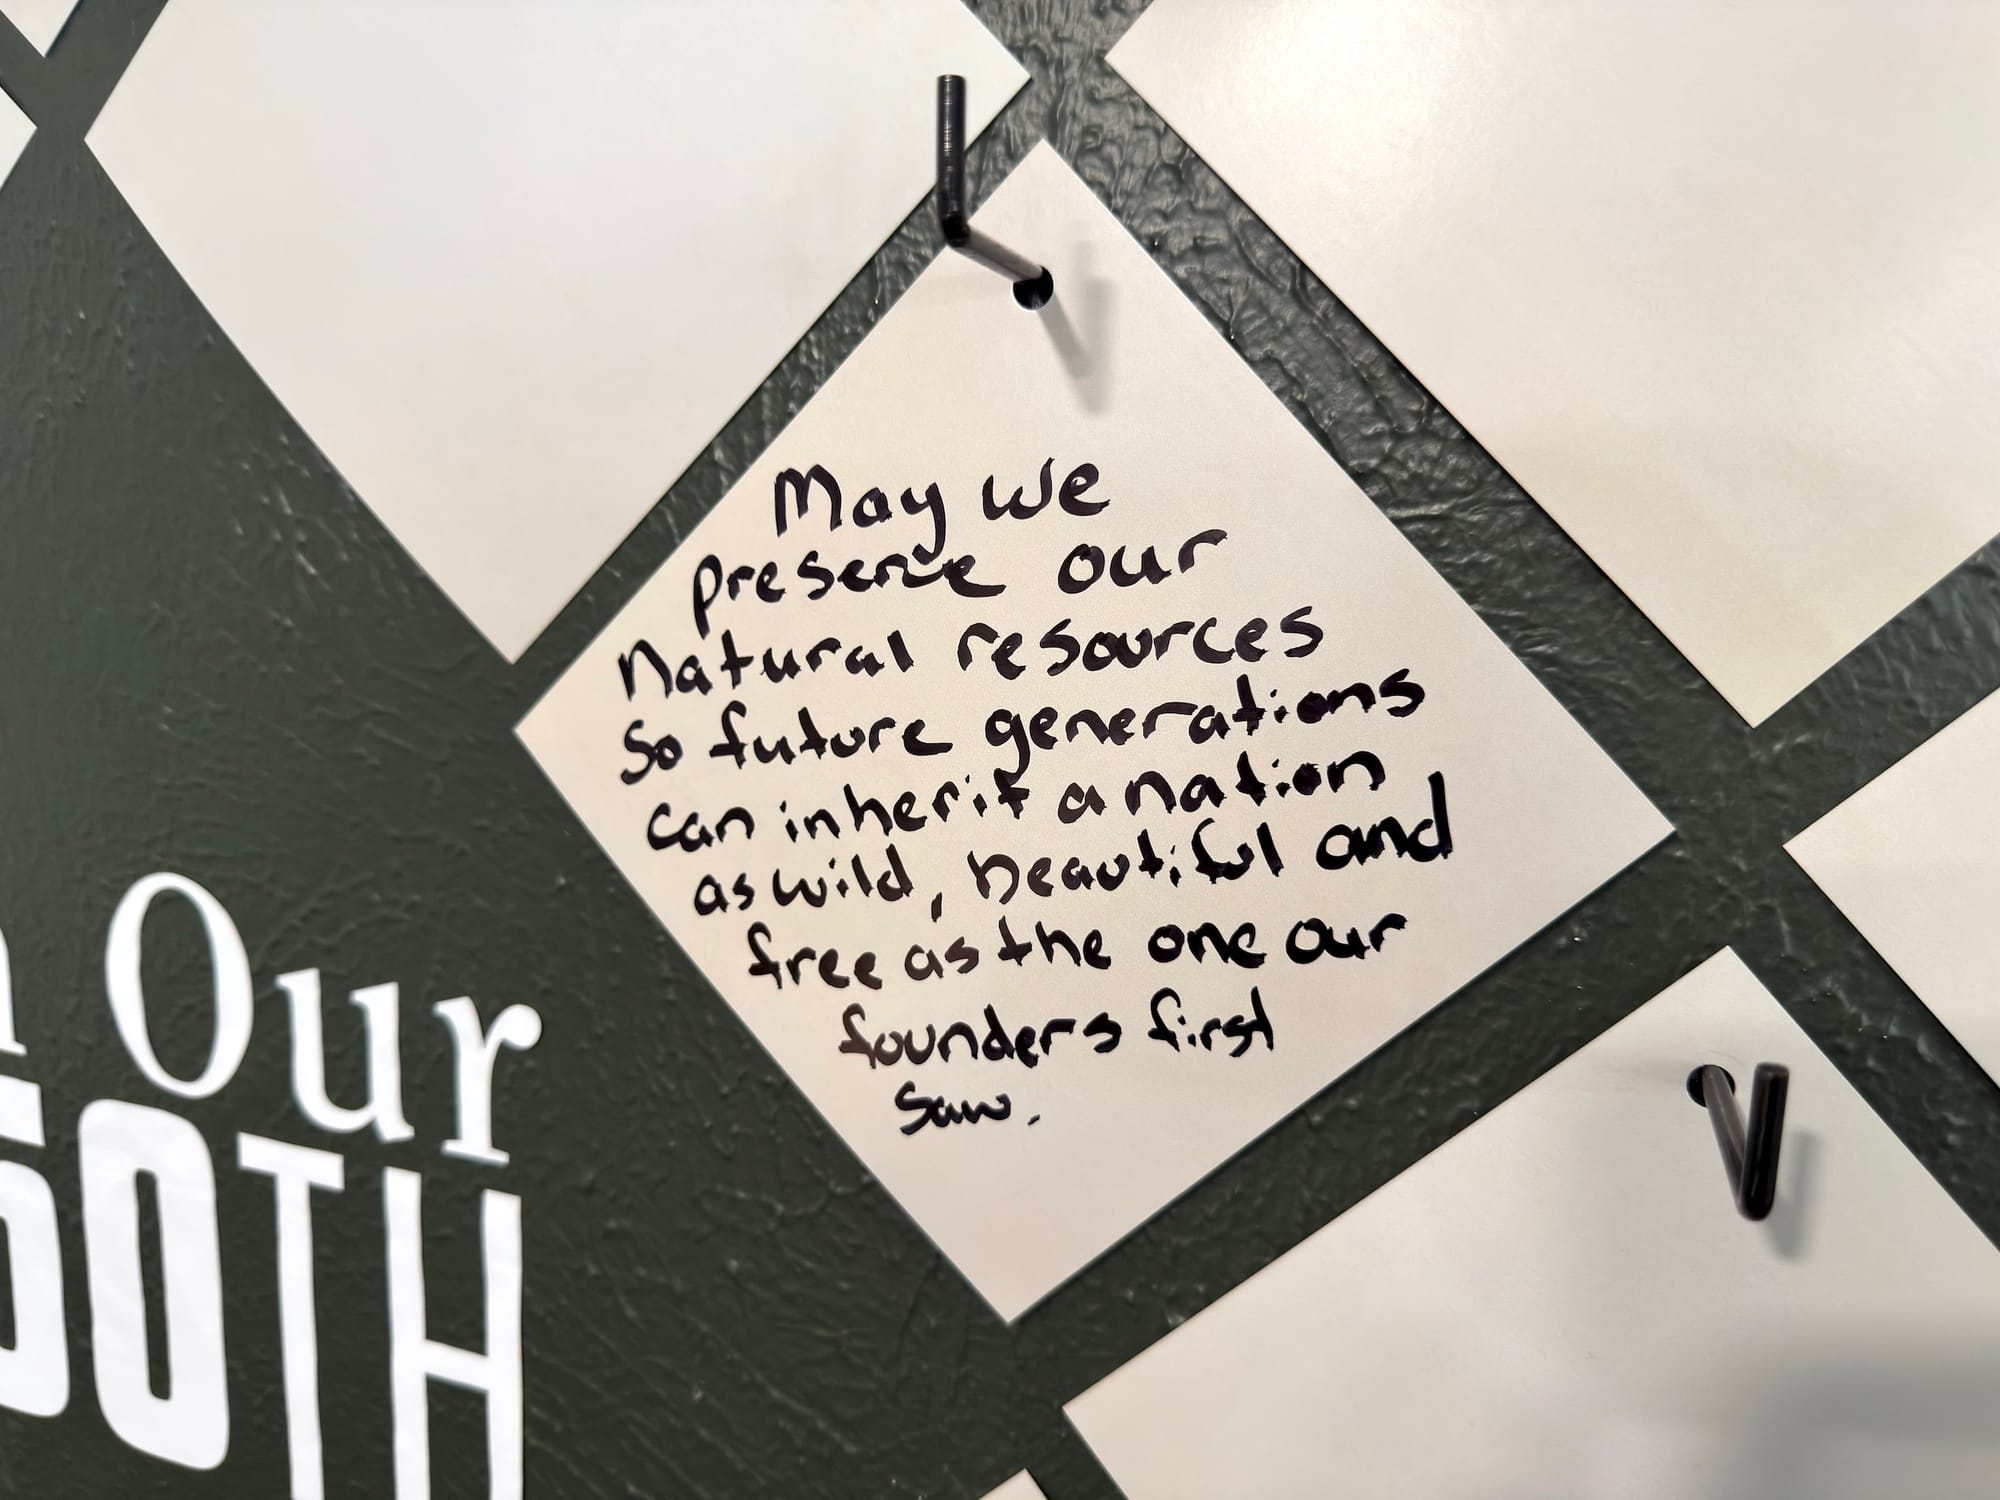 May we
preserve our
Natural resources
So future generations
can inherit a nation
as wild, beautiful and
free as the one our
founders first
Saw.
Our
50TH